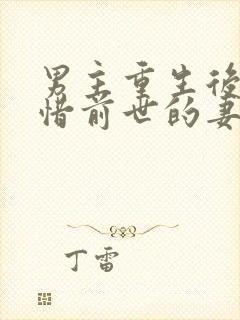 男主重生後
惜前世的妻
丁雷